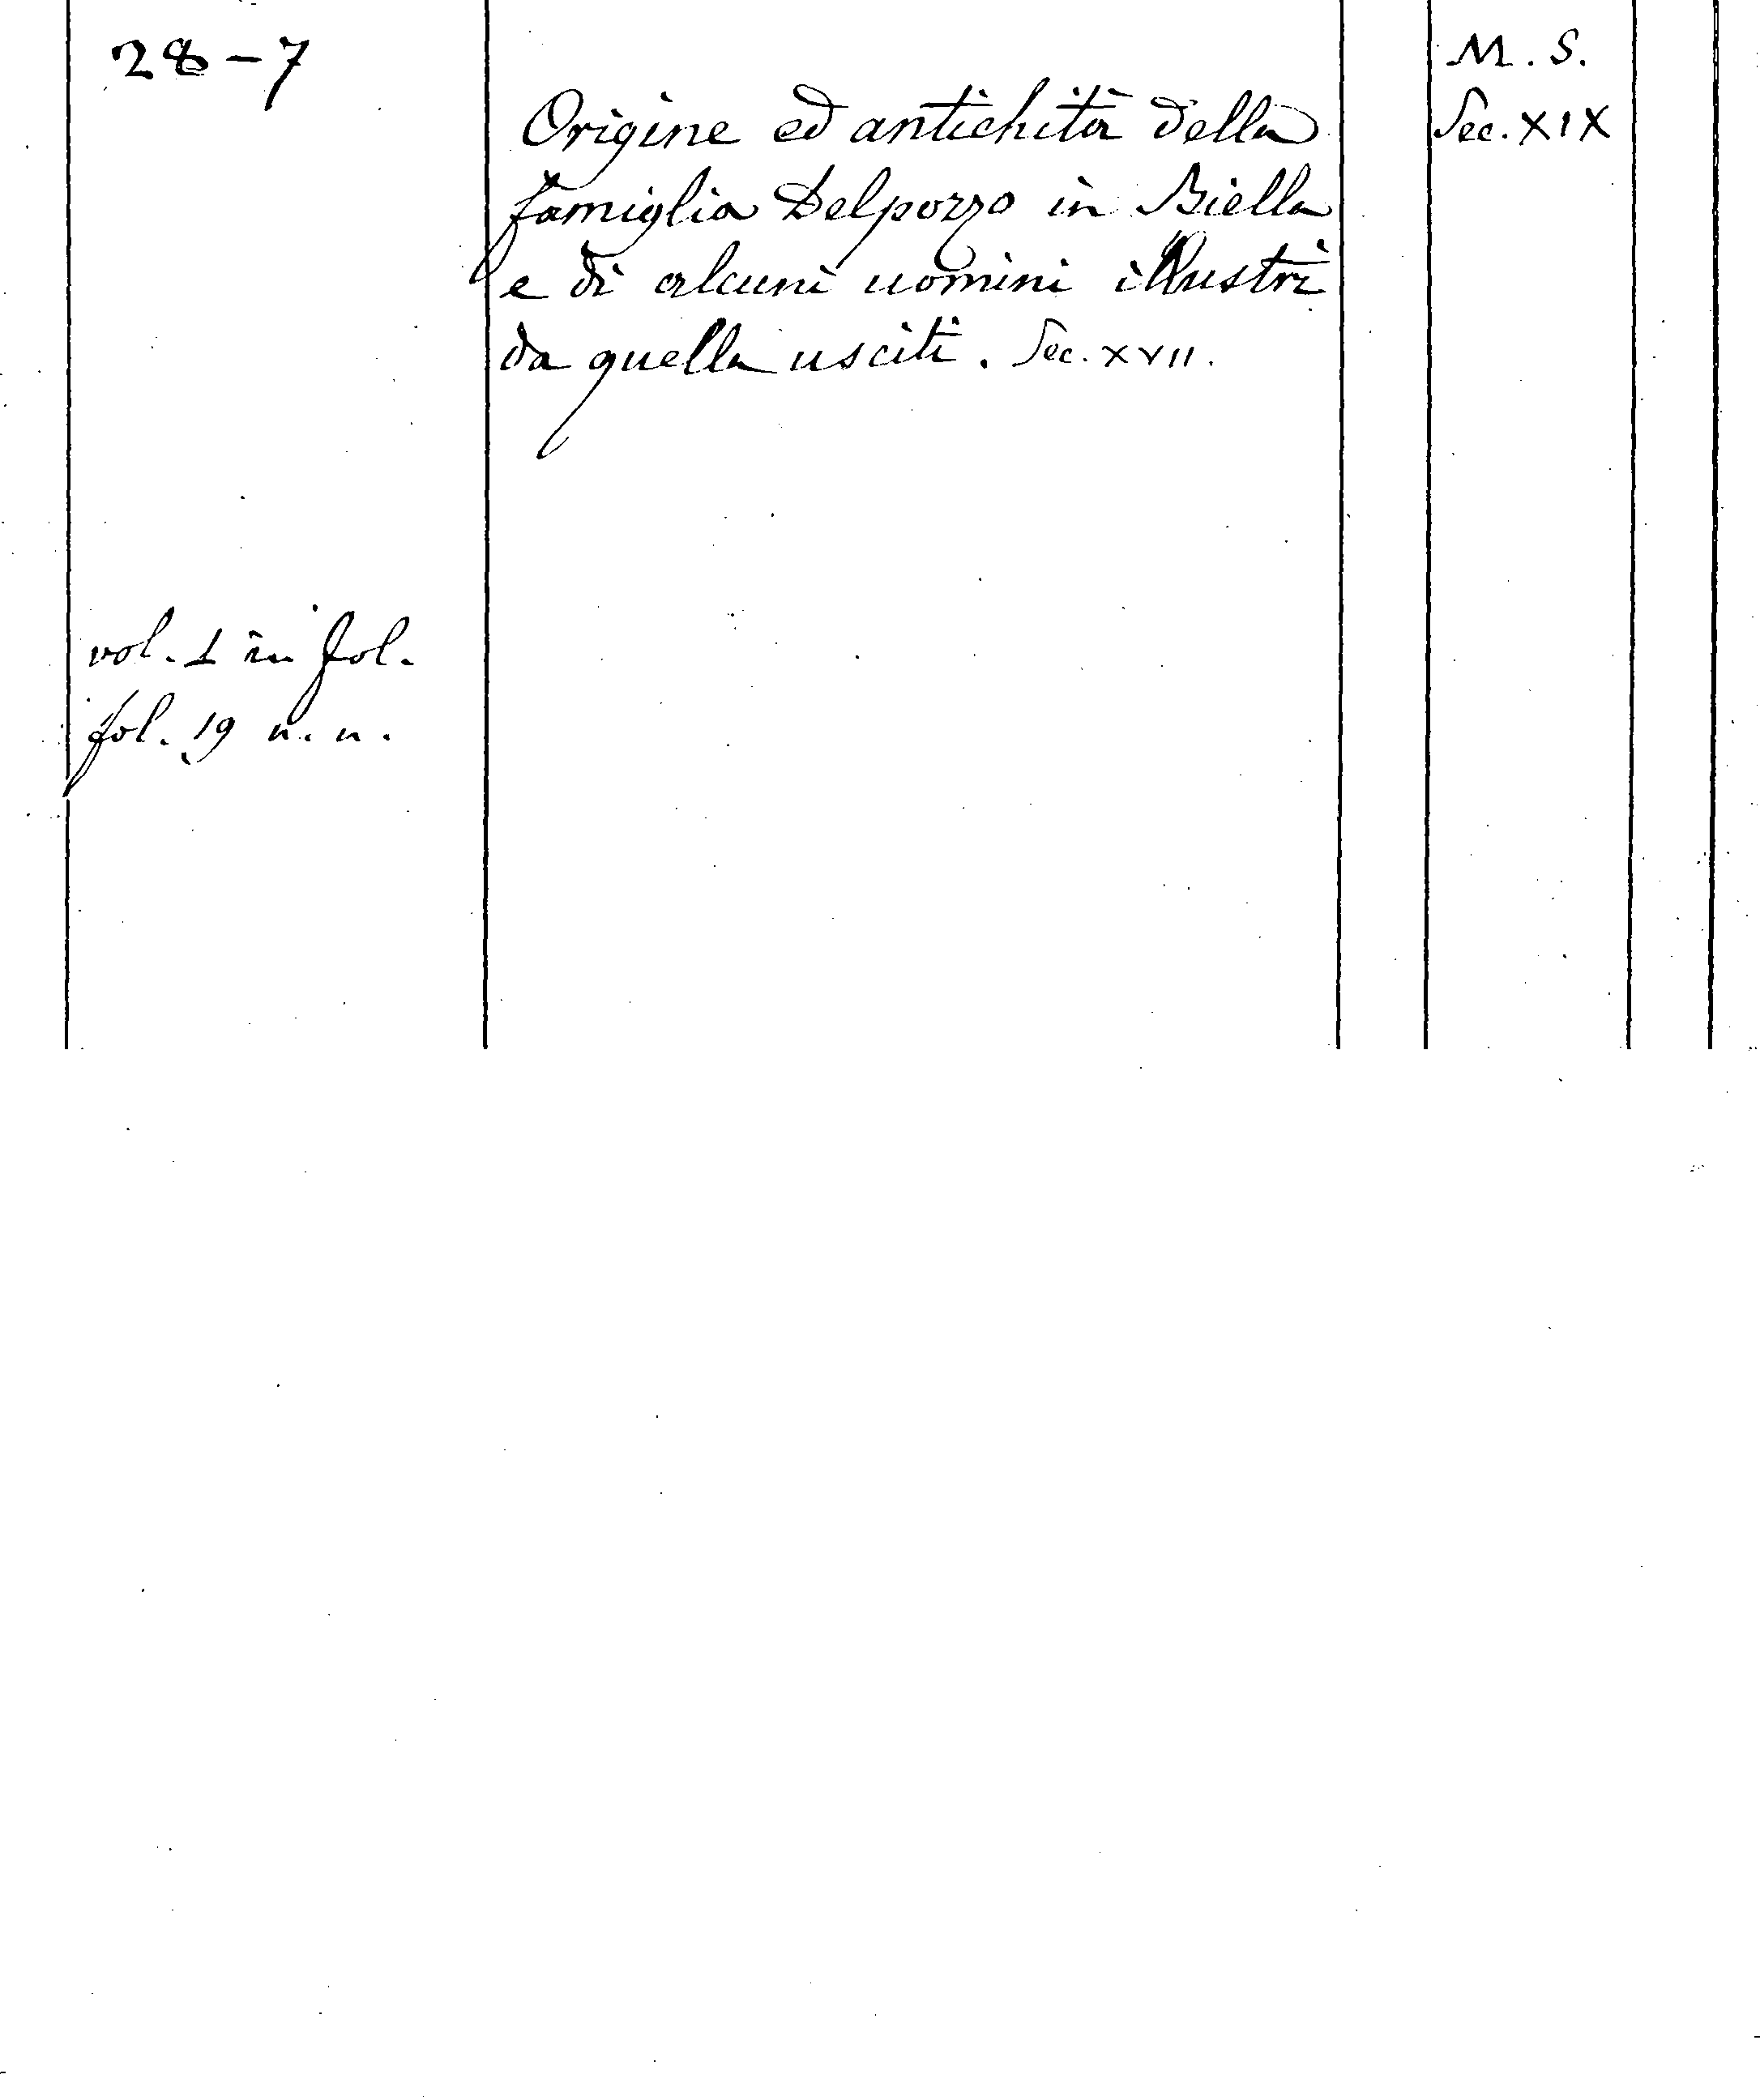 28-7
Origine ed antichità della
famiglia Delpozzo in Biella
e di alcuni uomini illustri
da quella usciti. Sec. XVII.
vol. 1 in fol.
fol. 19 n. n.
M. S.
Sec. XIX